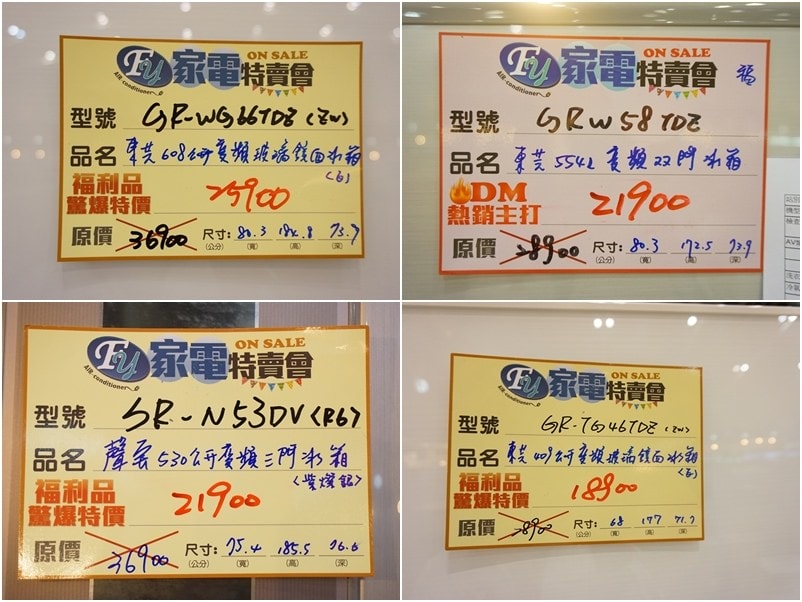 Fy 家電特賣會 ON SALE
AIR conditioner
型號 GR-WG66TDZ (ZW)
品名 東芝 608公升 變頻玻璃鏡面冰箱
(白)
福利品
驚爆特價 25900
原價 36900 尺寸: 80.3 184.8 73.7
(公分) (寬) (高) (深)
Fy 家電特賣會 ON SALE
AIR conditioner
福
型號 GRW58TDZ
品名 東芝 554L 變頻 双門冰箱
DM
熱銷主打 21900
原價 28900 尺寸: 80.3 172.5 73.9
(公分) (寬) (高) (深)
Fy 家電特賣會 ON SALE
AIR conditioner
型號 SR-N53DV (R6)
品名 聲宝 530公升變頻三門冰箱
<紫燦銀>
福利品
驚爆特價 21900
原價 36900 尺寸: 75.4 185.5 76.6
(公分) (寬) (高) (深)
Fy 家電特賣會 ON SALE
AIR conditioner
型號 GR-TG46TDZ (ZW)
品名 東芝 409公升變頻玻璃鏡面冰箱
(白)
福利品
驚爆特價 18900
原價 28900 尺寸: 68 177 71.7
(公分) (寬) (高) (深)